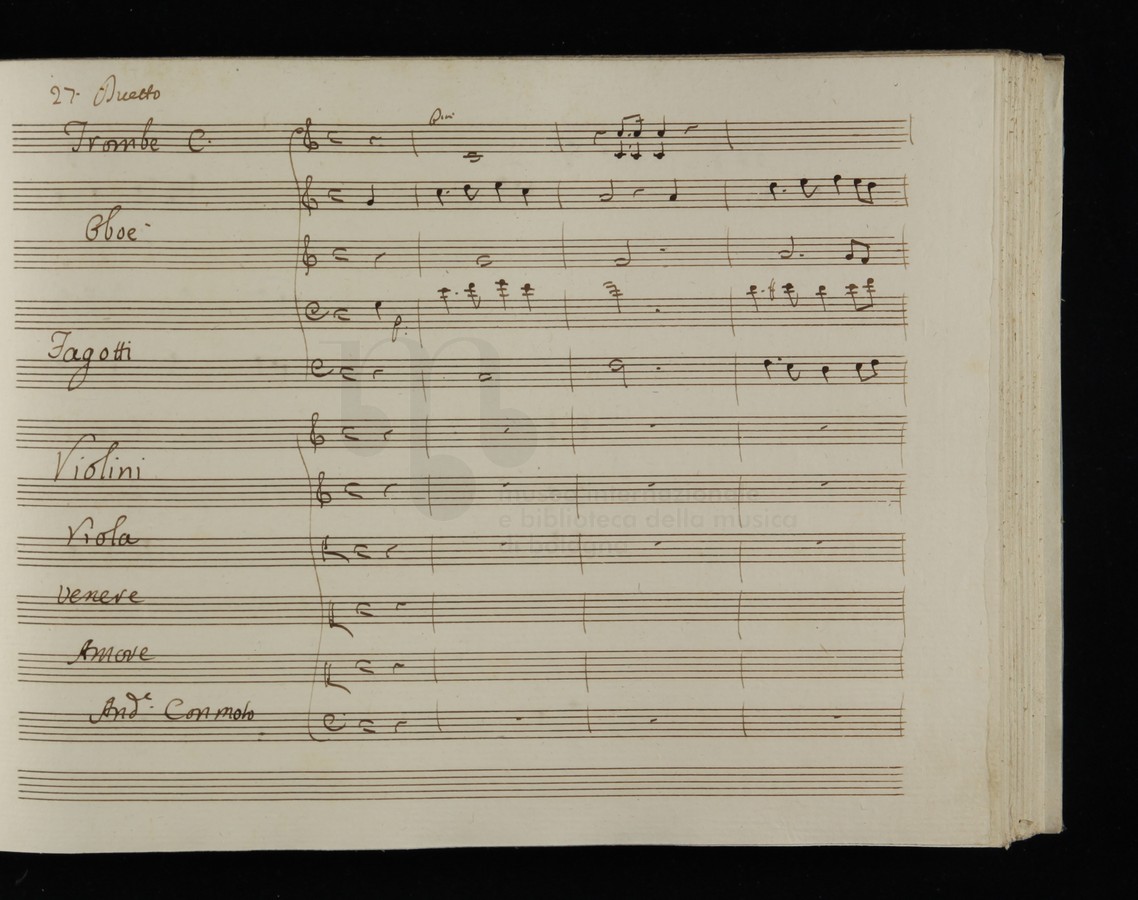 27. Duetto
Trombe C.
Oboe
p:
Fagotti
Violini
Viola
Venere
Amore
And.e Con moto
museo internazionale
e biblioteca della musica
di bologna